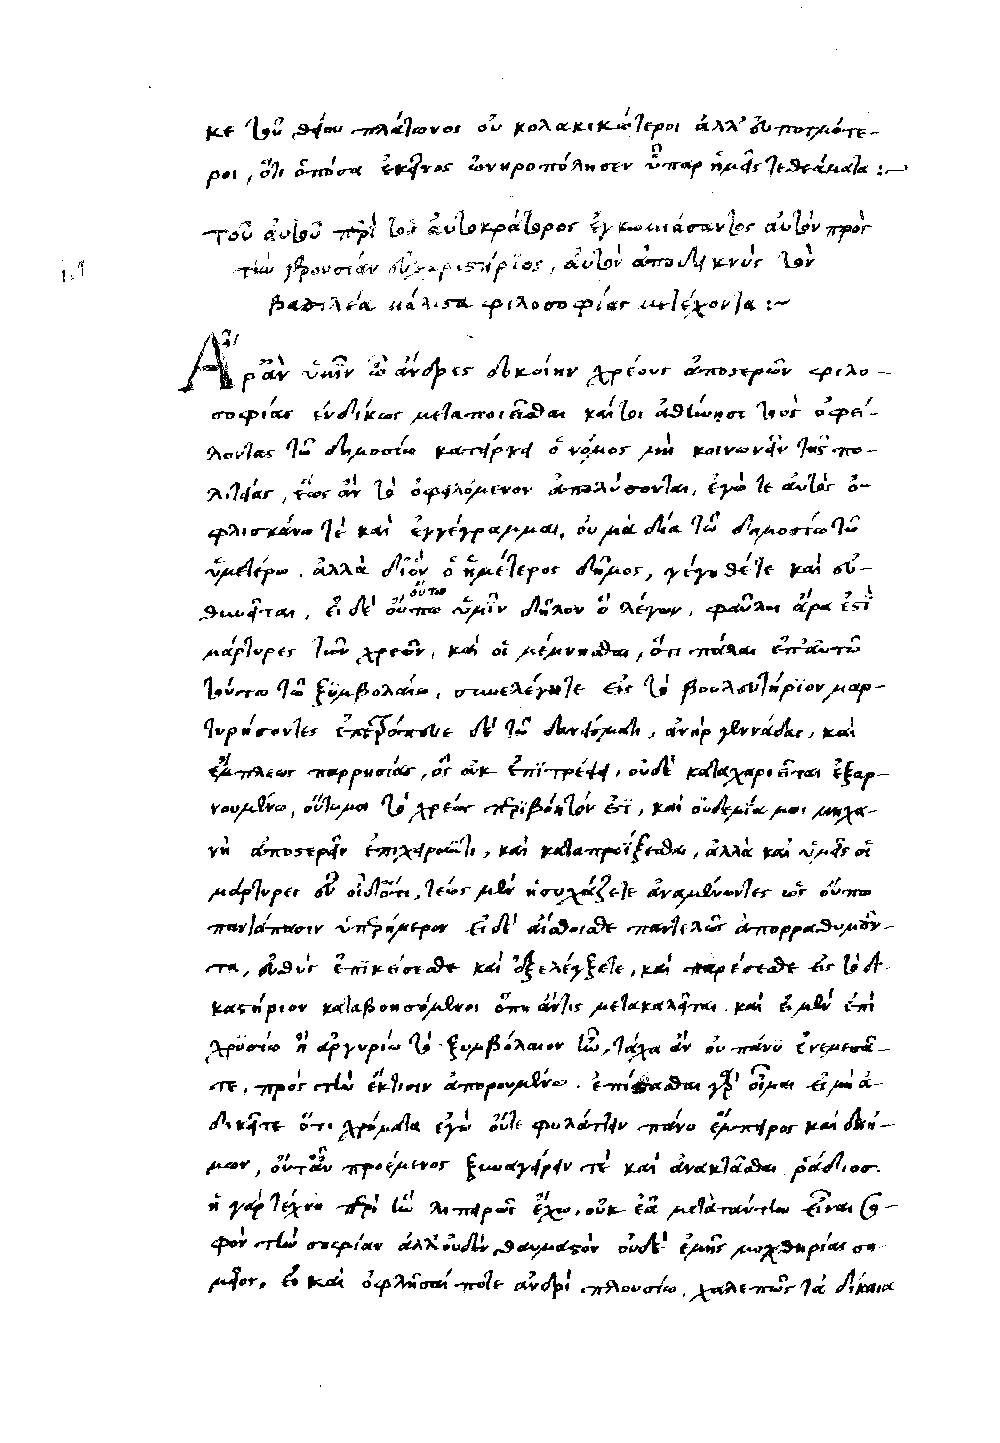 κε τοῦ θείου πλάτωνος οὐ κολακικώτεροι ἀλλ' εὐποτμότε-
ροι, ὅτι ὁπόσα ἐκεῖνος ὠνηροπόλησεν ὕπαρ ἡμεῖς τεθεάμεθα :~
Τοῦ αὐτοῦ περὶ τοῦ αὐτοκράτορος ἐγκωμιάσαντος αὐτὸν πρὸς
τὴν γερουσίαν εὐχαριστήριος, αὐτὸν ἀποδεικνὺς τὸν
βασιλέα μάλιστα φιλοσοφίας μετέχοντα :~
Ἆρ' ἂν ὑμῖν ὦ ἄνδρες δοκοίην χρέους ἀποστερῶν φιλο-
σοφίας ἐνδίκως μεταποιεῖσθαι καίτοι ἀθηνῃσι τοὺς ὀφεί-
λοντας τῶ δημοσίω κατεῖργεν ὁ νόμος μὴ κοινωνεῖν τῆς πο-
λιτείας, ἕως ἂν τὸ ὀφειλόμενον ἀπολύσονται, ἐγώ τε αὐτὸς ὀ-
φλισκάνω τὲ καὶ ἐγγέγραμμαι, οὐ μὰ δία τῶ δημοσίω τῶ
ὑμετέρω. ἀλλὰ δι' ὃν ὁ ἡμέτερος δῆμος, γέγηθέ τε καὶ εὐ-
θηνεῖται, εἰ δὲ οὔπω οὕτω ὑμῖν δῆλον ὃ λέγω, φαῦλοι ἄρα ἐστὲ
μάρτυρες τῶν χρεῶν, καὶ οἱ μέμνησθαι, ὅτι πάλαι ἐπ' αὐτῶ
τούτω τῶ ξυμβολαίω, συνελέγητε εἰς τὸ βουλευτήριον μαρ-
τυρήσοντες ἐπετρόπευε δὲ τῶ δανείσματι, ἀνὴρ γεννάδας, καὶ
ἔμπλεως παρρησίας, ὃς οὐκ ἐπιτρέψει, οὐδὲ καταχαριεῖται ἐξαρ-
νουμένω, οὕτω μοι τὸ χρέως περιβόητόν ἐστι, καὶ οὐδεμία μοι μηχα-
νὴ ἀποστερεῖν ἐπιχειροῦντι, καὶ καταπροΐξεσθαι, ἀλλὰ καὶ ὑμεῖς οἱ
μάρτυρες εὖ οἶδ' ὅτι, τέως μὲν ἡσυχάζετε ἀναμένοντες ὡς οὔπω
παντάπασιν ὑπερήμερον εἰ δὲ αἴσθοισθε παντελῶς ἀπορραθυμοῦν-
τα, εὐθὺς ἐπικείσεσθε καὶ ἐξελέγξετε, καὶ παρέσεσθε εἰς τὸ δι-
καστήριον καταβοησόμενοι ὅπη ἄν τις μετακαλῆται. καὶ εἰ μὲν ἐπὶ
χρυσίω ἢ ἀργυρίω τὸ ξυμβόλαιον ἦν, τάχα ἂν οὐ πάνυ ἐνεμεσᾶ-
τε, πρὸς τὴν ἔκτισιν ἀπορουμένω. ἐπίστασθαι γὰρ οἶμαι εἰ μὴ ἀ-
δικεῖτε ὅτι χρήματα ἐγὼ οὔτε φυλάττειν πάνυ ἔμπειρος καὶ δεινή-
μων, οὔτ' αὖ προέμενος ξυναγείρειν τὲ καὶ ἀνακτᾶσθαι ῥάδιος.
ἡ γὰρ τέχνη περὶ ἣν λιπαρῶς ἔχω, οὐκ ἐᾶ μετὰ ταύτην εἶναι σο-
φὸν τὴν ἑτέραν ἀλλ' οὐδὲν θαυμαστὸν οὐδὲ ἐμῆς μοχθηρίας ση-
μεῖον, εἰ καὶ ὀφλῆσαί ποτε ἀνδρὶ πλουσίω, χαλεπῶς τὰ δίκαια